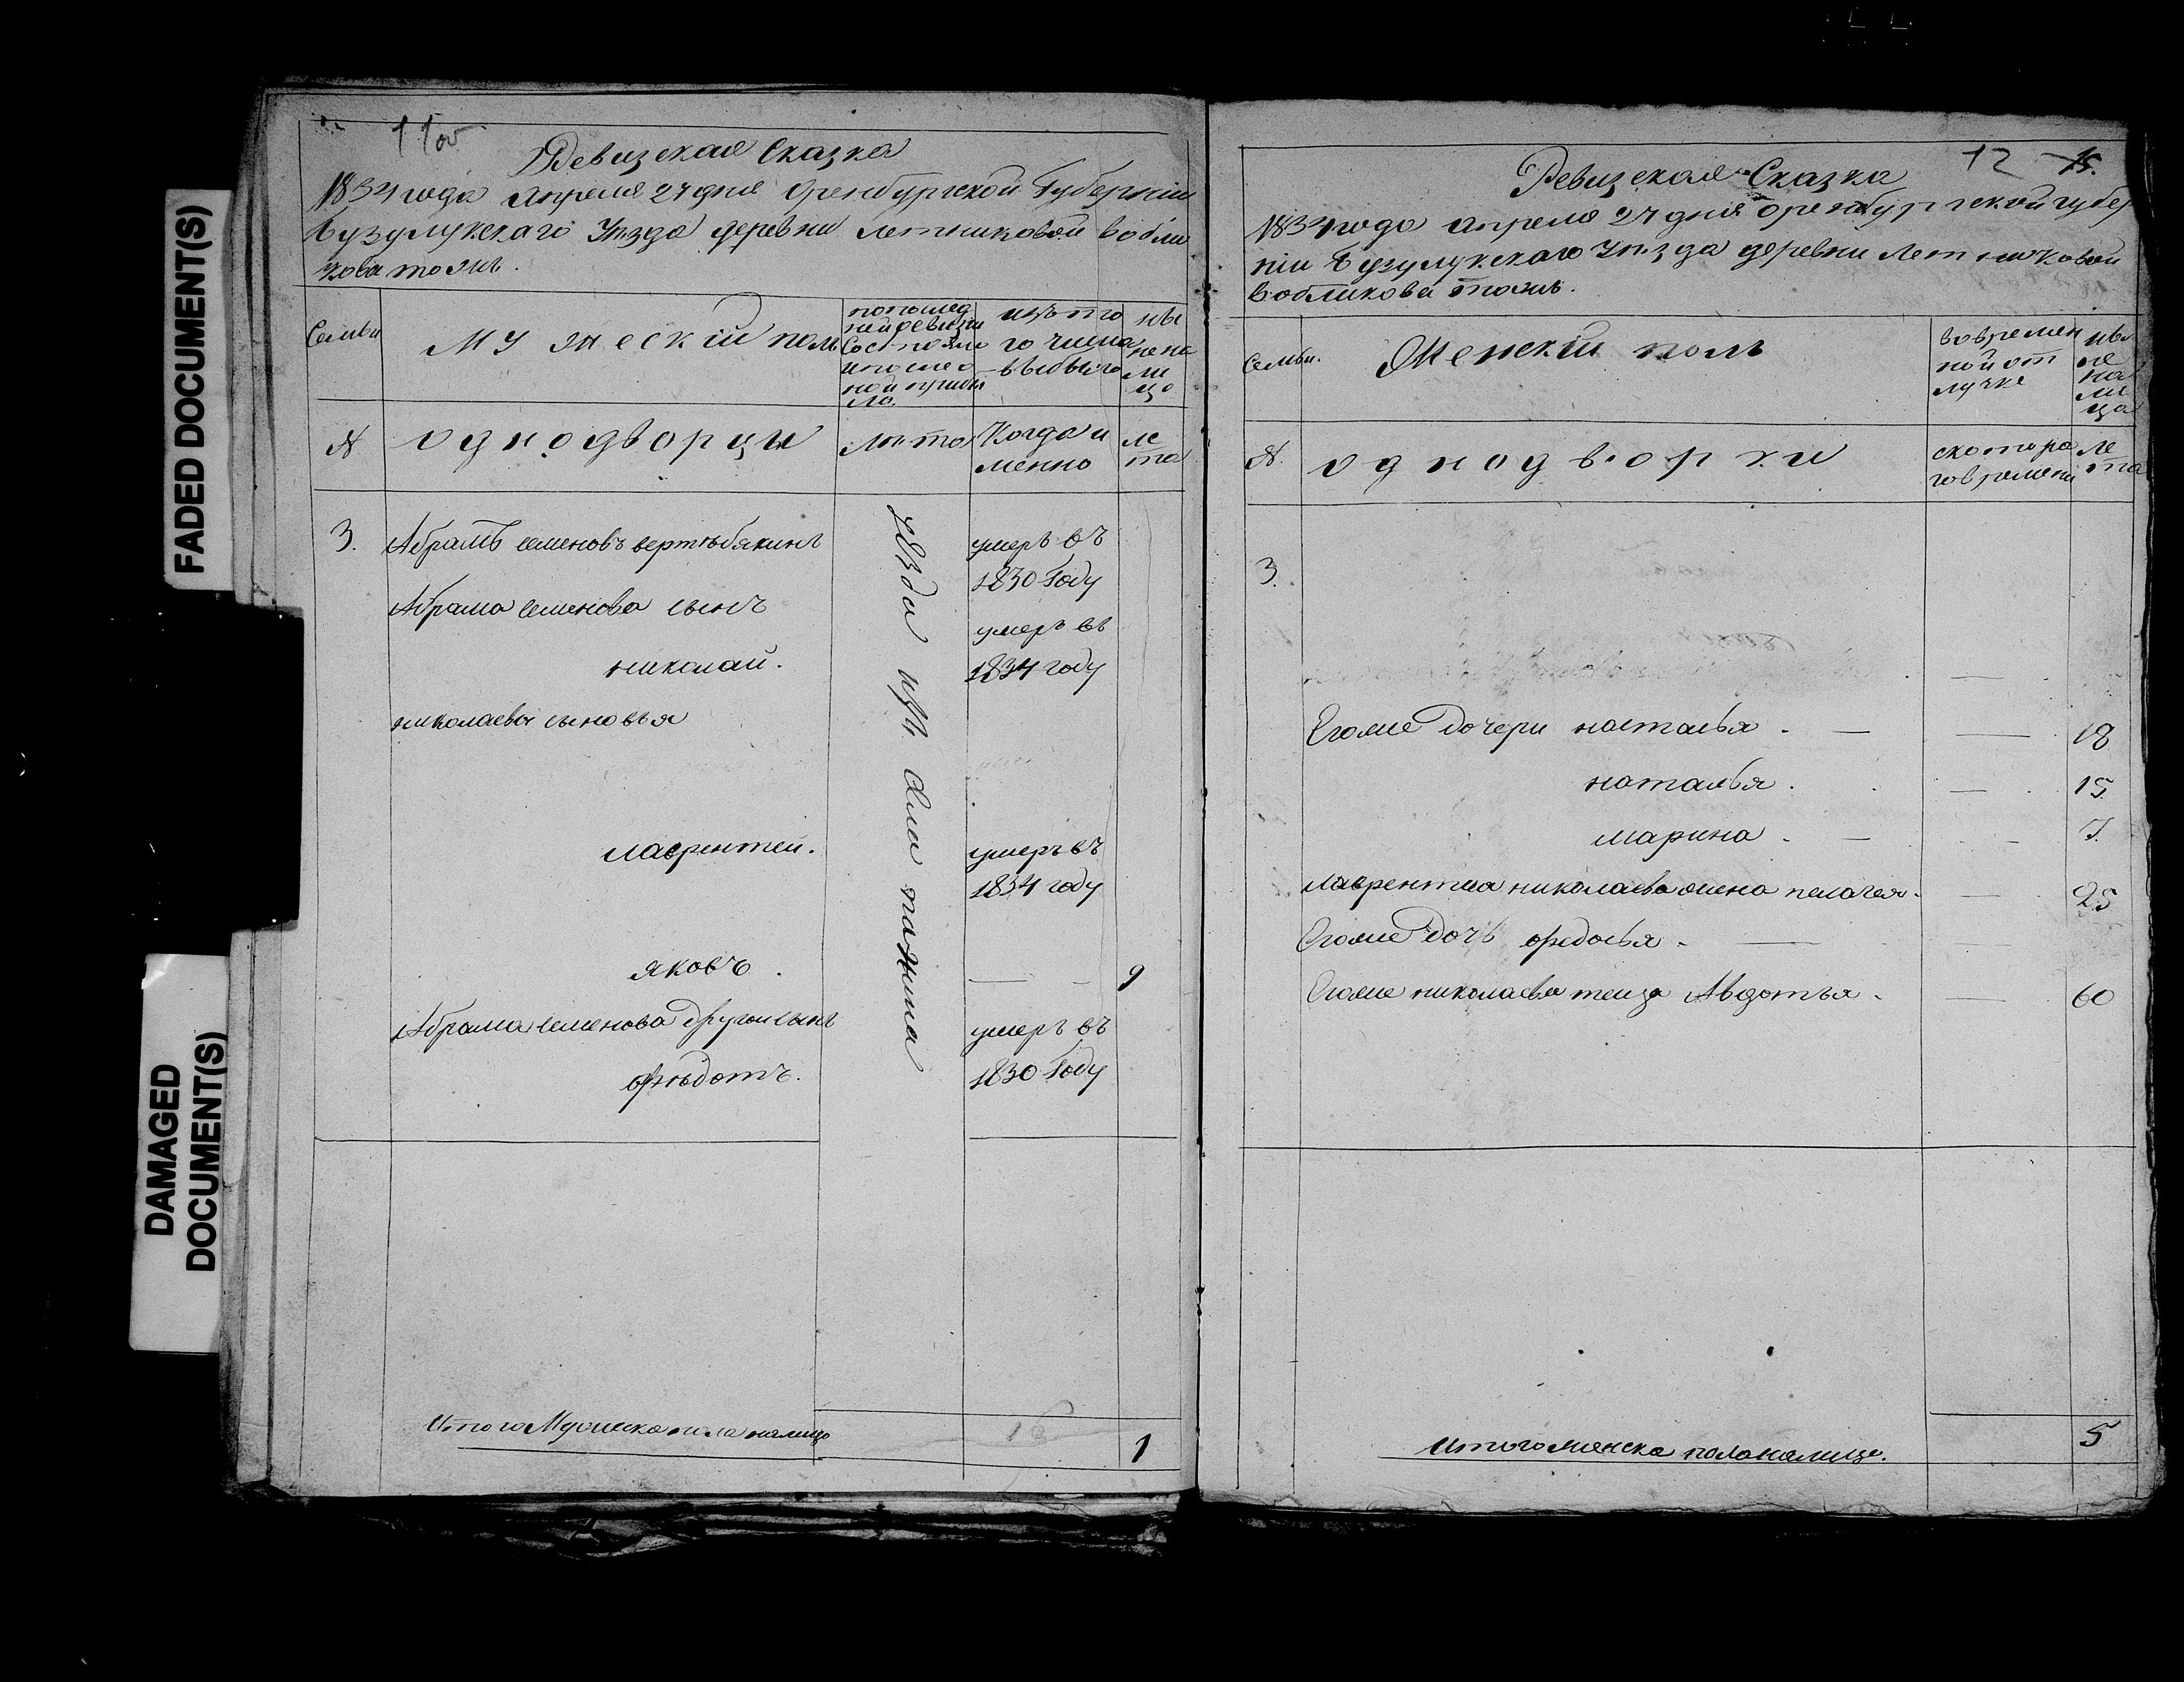 FADED DOCUMENT(S)
DAMAGED
DOCUMENT(S)
11об
Ревизская Сказка
1834 года апреля 27 дня Оренбургской Губерніи
Бузулукскаго Уѣзда деревни Летниковой
Семьи
мужескій полъ
изъ то
го числа
выбыло
ны
не на
ли
цо
№
однодворцы
лѣта
Когда и
менно
ле
та
3.
Абрамъ семеновъ вертѣбякинъ
умеръ въ
1830 Году
Абрама семенова сынъ
николай.
умеръ въ
1834 году
николаевы сыновья
лаврентей.
умеръ въ
1834 году
яковъ.
9
Абрама семенова другой сынъ
фѣдотъ.
умеръ въ
1830 Году
Итого Мужеска пола налицо
1
12 15.
Ревизская Сказка
1834 года апреля 27 дня Оренбургской губер
ніи Бузулукскаго Уѣзда деревни Летниковой
Семьи.
Женскій полъ
во времен
ной от
лучке
ны
не
на
ли
цо
№.
однодворки
скотора
го времени
ле
та
3.
Егоже дочери настасья. 18
наталья. 15
марина. 7.
лаврентия николаева жена пелагея. 25
Егоже дочь федосья.
Егоже николаева теща Авдотья. 60
Итого женска пола налицо.
5